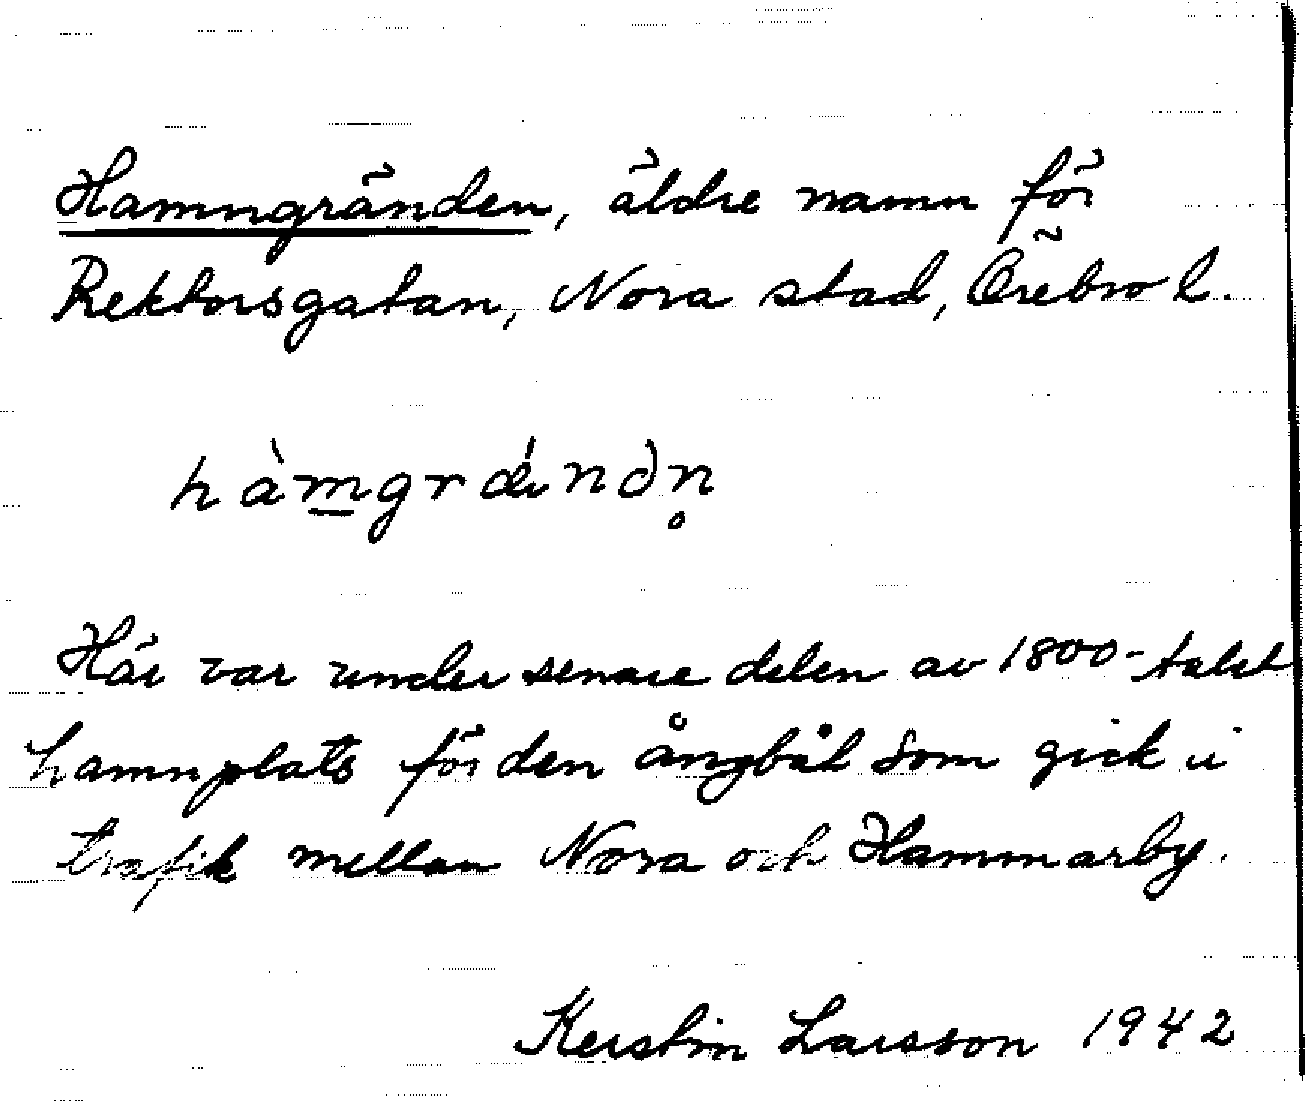 Hamngränden, äldre namn för
Rektorsgatan, Nora stad, Örebro l.
hàm̲grǽndən̥
Här var under senare delen av 1800-talet
hamnplats för den ångbåt som gick i
trafik mellan Nora och Hammarby.
Kerstin Larsson 1942